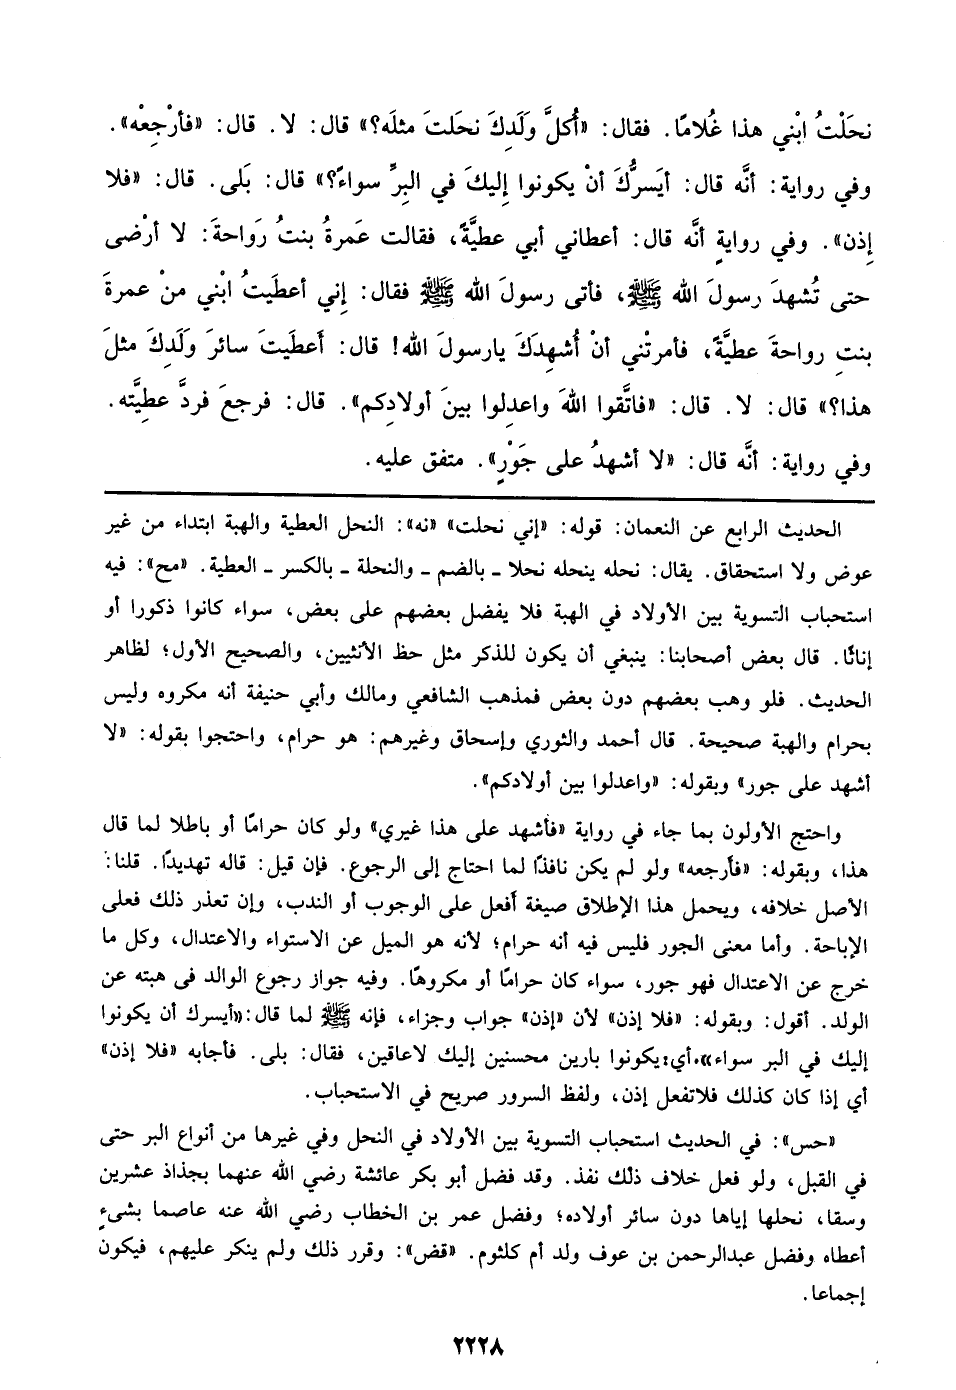 نحَلْتُ ابْني هذا غُلامًا. فقال: «أكلَّ وَلَدِكَ نحَلتَ مثلَه؟» قال: لا. قال: «فأرْجِعْه».
وفي رواية: أنَّه قال: أيَسرُّكَ أنْ يكونوا إليكَ في البرِّ سواءً؟» قال: بَلى. قال: «فلا
إذن». وفي روايةٍ أنَّه قال: أعطاني أبي عطيَّةً، فقالت عَمرةُ بنتُ رَواحةَ: لا أرْضى
حتى تُشهدَ رسولَ الله ﷺ، فأتى رسولَ الله ﷺ فقال: إني أعطَيتُ ابْني منْ عمرةَ
بنتِ رواحةَ عطيَّةً، فأمرتْني أنْ أُشهِدَكَ يارسولَ الله! قال: أَعطَيتَ سائرَ وَلَدِكَ مثلَ
هذا؟» قال: لا. قال: «فاتَّقوا اللهَ واعدِلوا بينَ أولادِكم». قال: فرجعَ فردَّ عطيَّته.
وفي رواية: أنَّه قال: «لا أشهدُ على جَوْرٍ». متفق عليه.
الحديث الرابع عن النعمان: قوله: «إني نحلت» «نه»: النحل العطية والهبة ابتداء من غير
عوض ولا استحقاق. يقال: نحله ينحله نحلا ـ بالضم ـ والنحلة ـ بالكسر ـ العطية. «مح»: فيه
استحباب التسوية بين الأولاد في الهبة فلا يفضل بعضهم على بعض، سواء كانوا ذكورا أو
إناثًا. قال بعض أصحابنا: ينبغي أن يكون للذكر مثل حظ الأنثيين، والصحيح الأول؛ لظاهر
الحديث. فلو وهب بعضهم دون بعض فمذهب الشافعي ومالك وأبي حنيفة أنه مكروه وليس
بحرام والهبة صحيحة. قال أحمد والثوري وإسحاق وغيرهم: هو حرام، واحتجوا بقوله: «لا
أشهد على جور» وبقوله: «واعدلوا بين أولادكم».
واحتج الأولون بما جاء في رواية «فأشهد على هذا غيري» ولو كان حرامًا أو باطلا لما قال
هذا، وبقوله: «فأرجعه» ولو لم يكن نافذًا لما احتاج إلى الرجوع. فإن قيل: قاله تهديدًا. قلنا:
الأصل خلافه، ويحمل هذا الإطلاق صيغة أفعل على الوجوب أو الندب، وإن تعذر ذلك فعلى
الإباحة. وأما معنى الجور فليس فيه أنه حرام؛ لأنه هو الميل عن الاستواء والاعتدال، وكل ما
خرج عن الاعتدال فهو جور، سواء كان حرامًا أو مكروهًا. وفيه جواز رجوع الوالد فى هبته عن
الولد. أقول: وبقوله: «فلا إذن» لأن «إذن» جواب وجزاء، فإنه ﷺ لما قال:«أيسرك أن يكونوا
إليك في البر سواء».أي:يكونوا بارين محسنين إليك لاعاقين، فقال: بلى. فأجابه «فلا إذن»
أي إذا كان كذلك فلاتفعل إذن، ولفظ السرور صريح في الاستحباب.
«حس»: في الحديث استحباب التسوية بين الأولاد في النحل وفي غيرها من أنواع البر حتى
في القبل، ولو فعل خلاف ذلك نفذ. وقد فضل أبو بكر عائشة رضي الله عنهما بجذاذ عشرين
وسقا، نحلها إياها دون سائر أولاده؛ وفضل عمر بن الخطاب رضي الله عنه عاصما بشىءٍ
أعطاه وفضل عبدالرحمن بن عوف ولد أم كلثوم. «قض»: وقرر ذلك ولم ينكر عليهم، فيكون
إجماعا.
٢٢٢٨